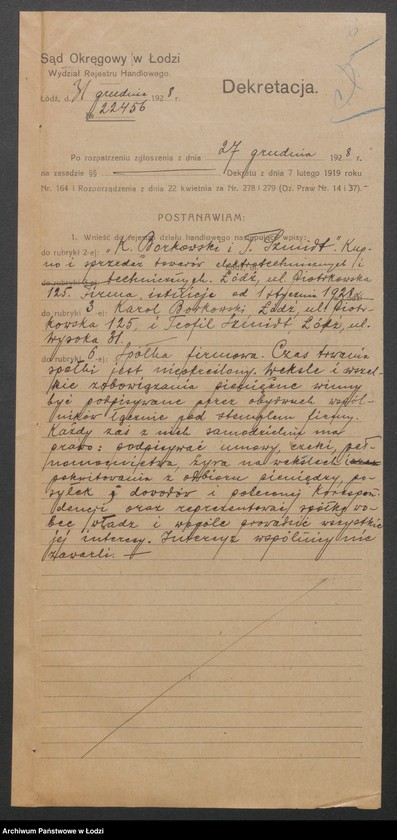 Sąd Okręgowy w Łodzi
Wydział Rejestru Handlowego.
Łódź, d. 31 grudnia 1928 r.
№ 22456
Dekretacja.
Po rozpatrzeniu zgłoszenia z dnia 27 grudnia 1928 r.
na zasadzie §§ Dekretu z dnia 7 lutego 1919 roku
Nr. 164 i Rozporządzenia z dnia 22 kwietnia za Nr. 278 i 279 (Dz. Praw Nr. 14 i 37).
POSTANAWIAM:
1. Wnieść do rejestru działu handlowego następujące wpisy:
do rubryki 2-ej: „K. Borkowski i T. Szmidt" Kup-
no i sprzedaż towarów elektrotechnicznych i
do rubryki technicznych. Łódź, ul. Piotrkowska
125. Firma istnieje od 1 stycznia 1928 r.
do rubryki 3 -ej: Karol Borkowski, Łódź, ul. Piotr-
kowska 125, i Teofil Szmidt, Łódź, ul.
Wysoka 31.
do rubryki 6 -ej: Spółka firmowa. Czas trwania
spółki jest nieokreślony. Weksle i wszel-
kie zobowiązania pieniężne winny
być podpisywane przez obydwuch wspól-
ników łącznie pod stemplem firmy.
Każdy zaś z nich samodzielnie ma
prawo: podpisywać umowy, czeki, peł-
nomocnictwa, żyra na wekslach i
pokwitowania z odbioru pieniędzy, po-
syłek i dowodów i poleconej korespon-
dencji oraz reprezentować spółkę wo-
bec władz i wogóle prowadzić wszystkie
jej interesy. Intercyz wspólnicy nie
zawarli.
Archiwum Państwowe w Łodzi